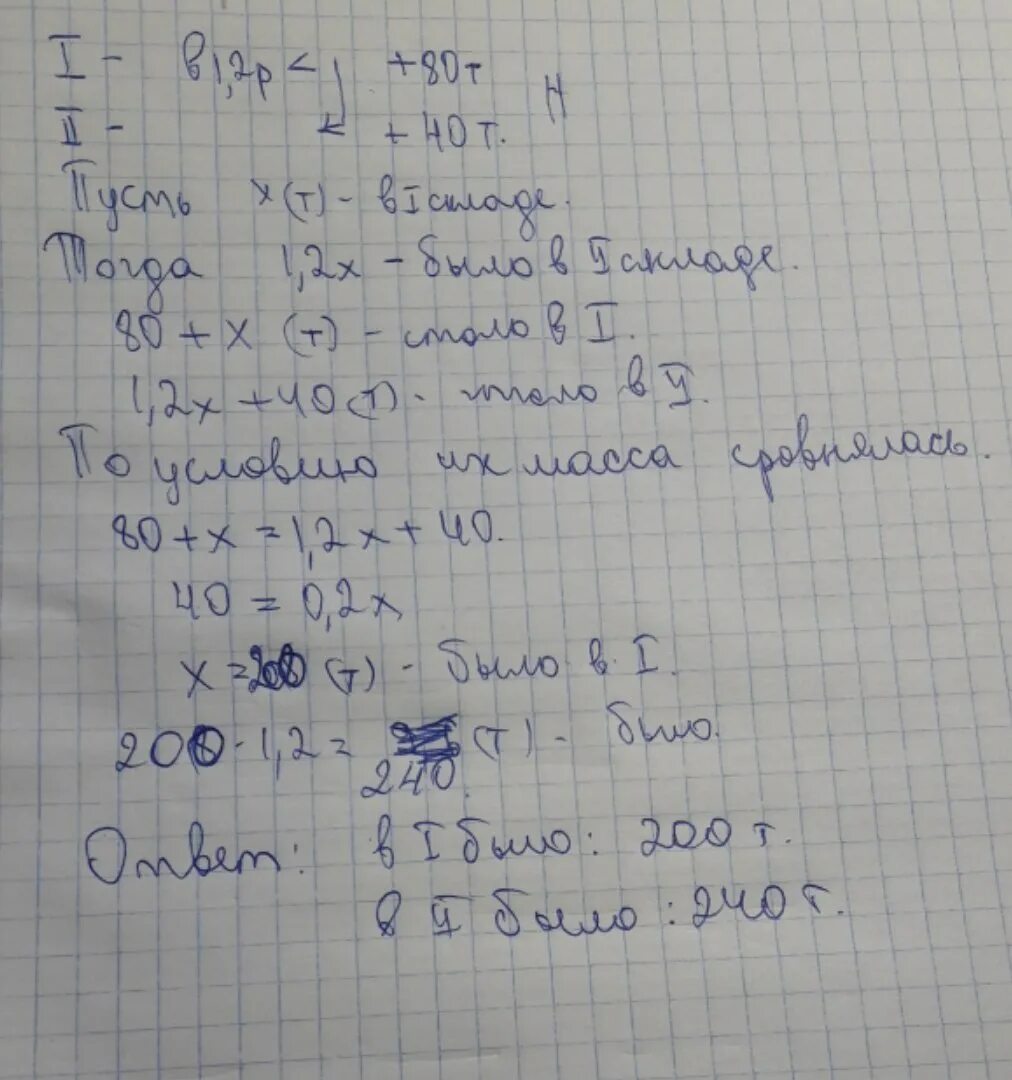 I - в 1,2р < +80т
II - < + 40т. Н
Пусть х(т) - в I складе.
Тогда 1,2х - было в II складе.
80 + х (т) - стало в I.
1,2х + 40(т) - стало в II.
По условию их масса сровнялась.
80 + х = 1,2х + 40.
40 = 0,2х
х = 200 (т) - было в I.
200 · 1,2 = (т) - было.
240.
Ответ: в I было: 200 т.
в II было: 240 т.